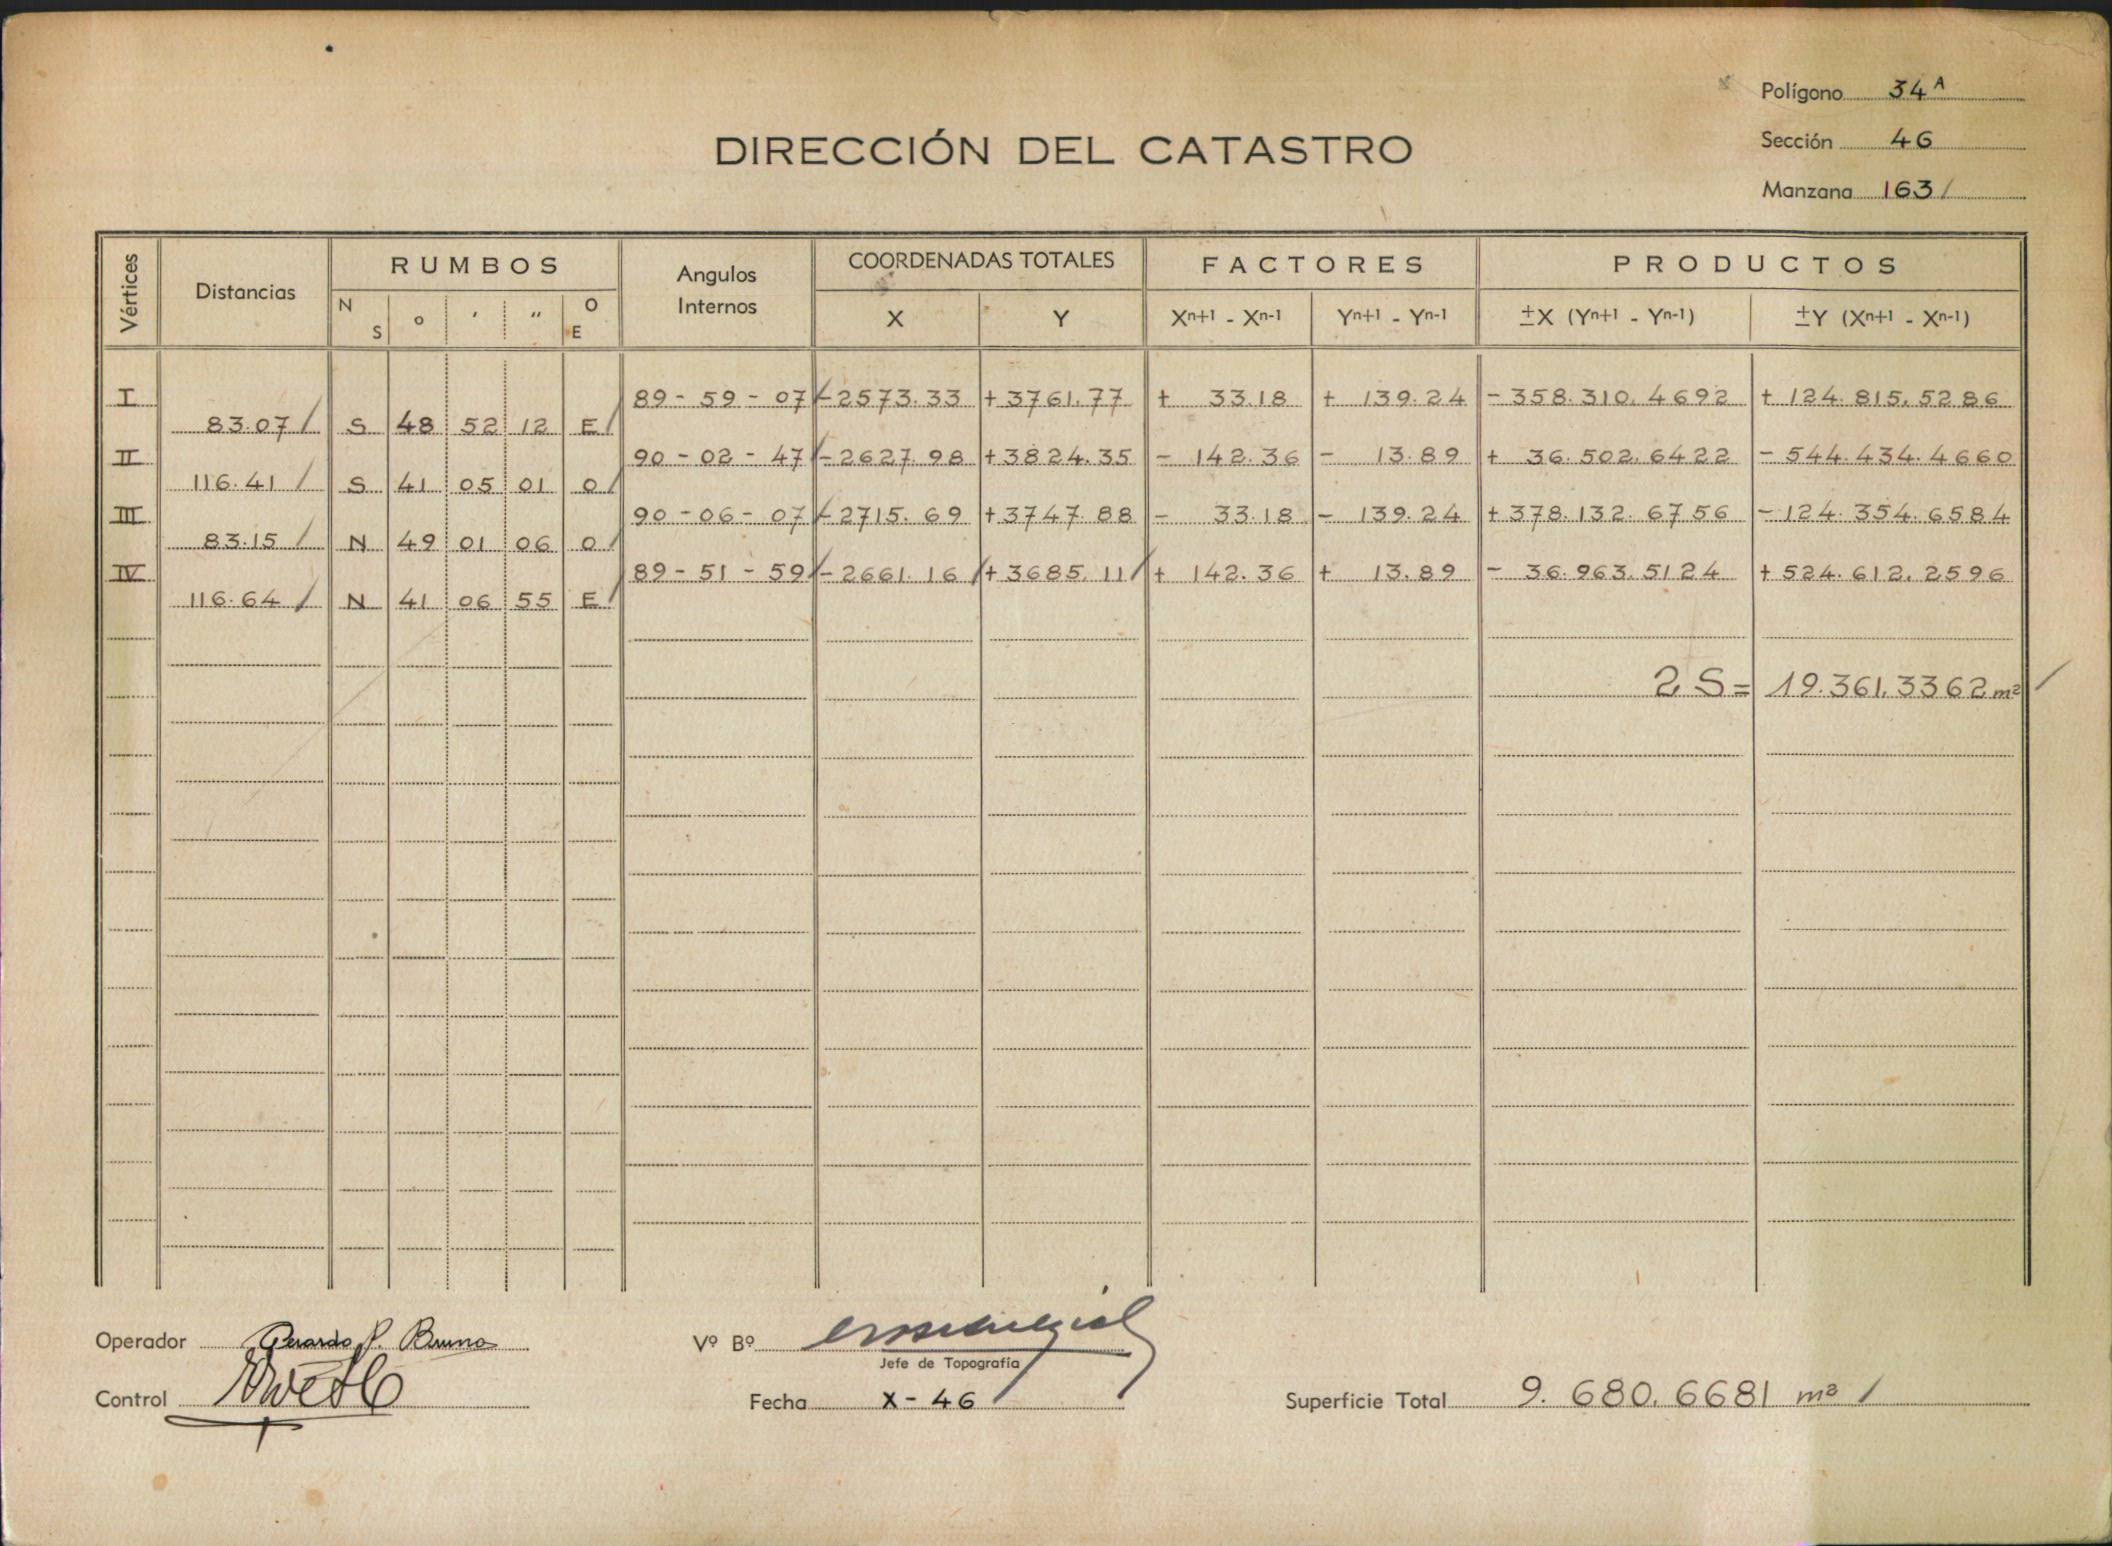 Polígono 34 A
DIRECCIÓN DEL CATASTRO
Sección 46
Manzana 163 /
Vértices Distancias RUMBOS N S o ' " O E Angulos Internos COORDENADAS TOTALES X Y FACTORES Xn+1 - Xn-1 Yn+1 - Yn-1 PRODUCTOS ±X (Yn+1 - Yn-1) ±Y (Xn+1 - Xn-1)
I 89-59-07 / -2573.33 +3761.77 + 33.18 + 139.24 -358.310.4692 + 124.815.5286
83.07 / S 48 52 12 E /
II 90-02-47 / -2627.98 +3824.35 - 142.36 - 13.89 + 36.502.6422 - 544.434.4660
116.41 / S 41 05 01 O /
III 90-06-07 / -2715.69 +3747.88 - 33.18 - 139.24 +378.132.6756 -124.354.6584
83.15 / N 49 01 06 O /
IV 89-51-59 / -2661.16 / +3685.11 / + 142.36 + 13.89 - 36.963.5124 + 524.612.2596
116.64 / N 41 06 55 E /
2 S = 19.361.3362 m² /
Operador Gerardo P. Bruno
Vº Bº
Jefe de Topografía
Control
Fecha X-46
Superficie Total 9.680.6681 m² /